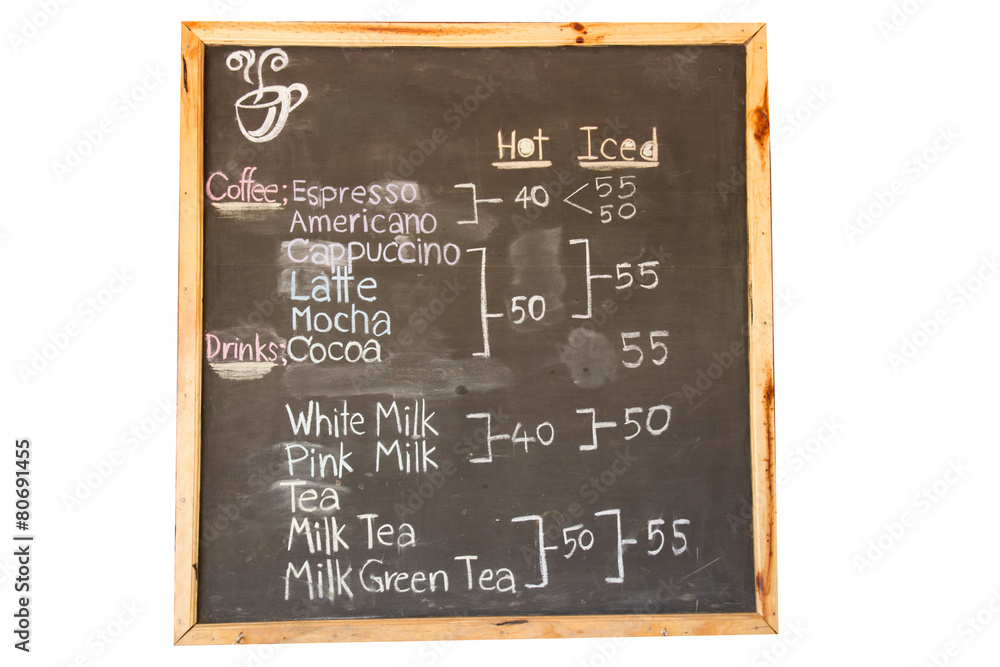 Hot Iced
Coffee; Espresso 40 55
Americano 50
Cappuccino
Latte 55
Mocha 50
Drinks; Cocoa 55
White Milk 40 50
Pink Milk
Tea
Milk Tea 50 55
Milk Green Tea
Adobe Stock | #80691455